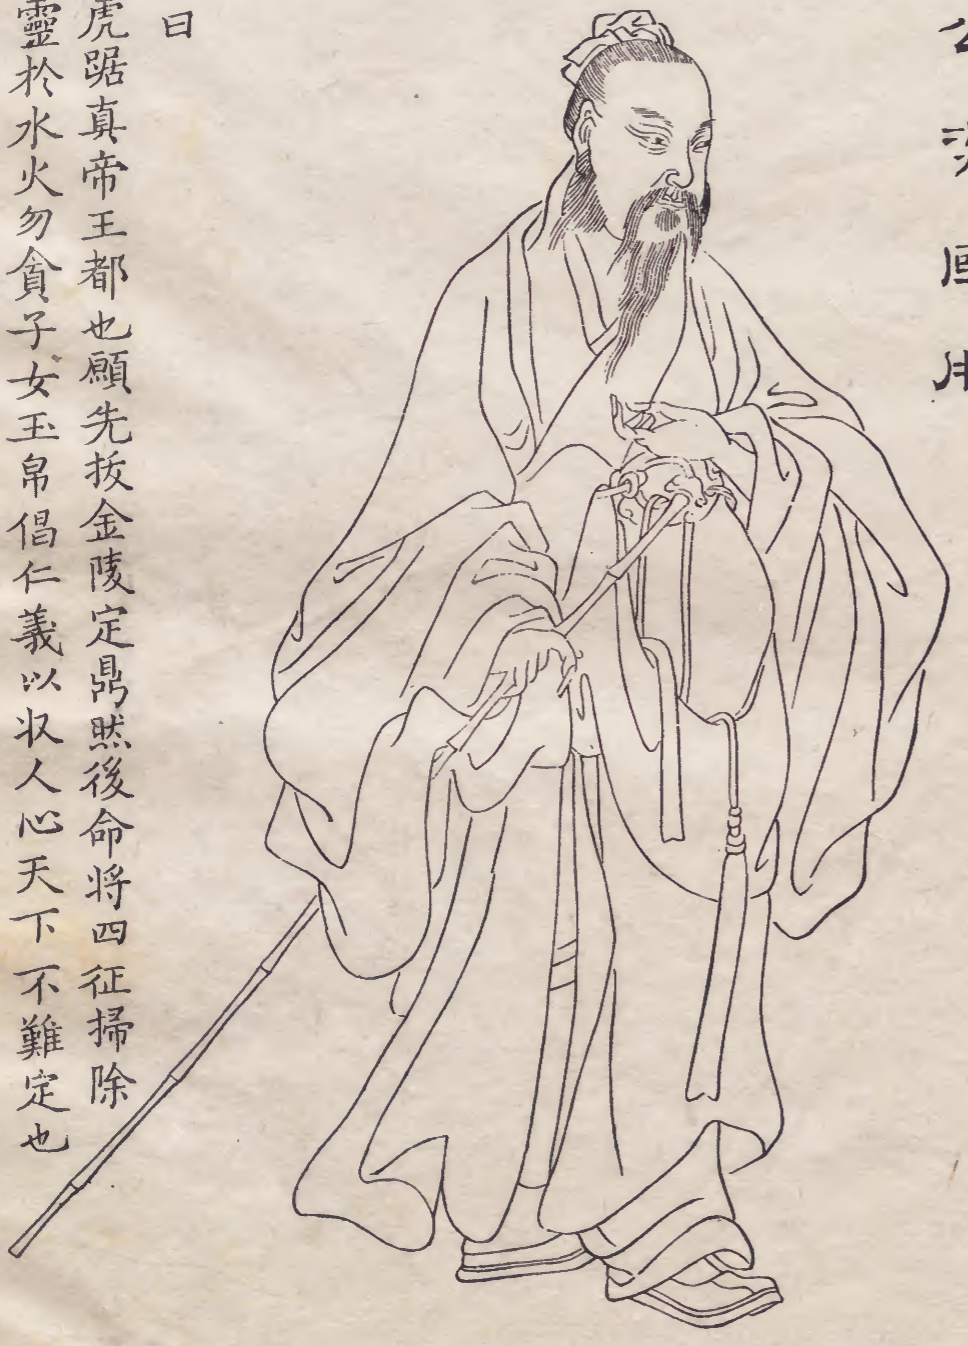 曰
虎踞真帝王都也願先拔金陵定鼎然後命将四征掃除
靈於水火勿貪子女玉帛倡仁義以収人心天下不難定也